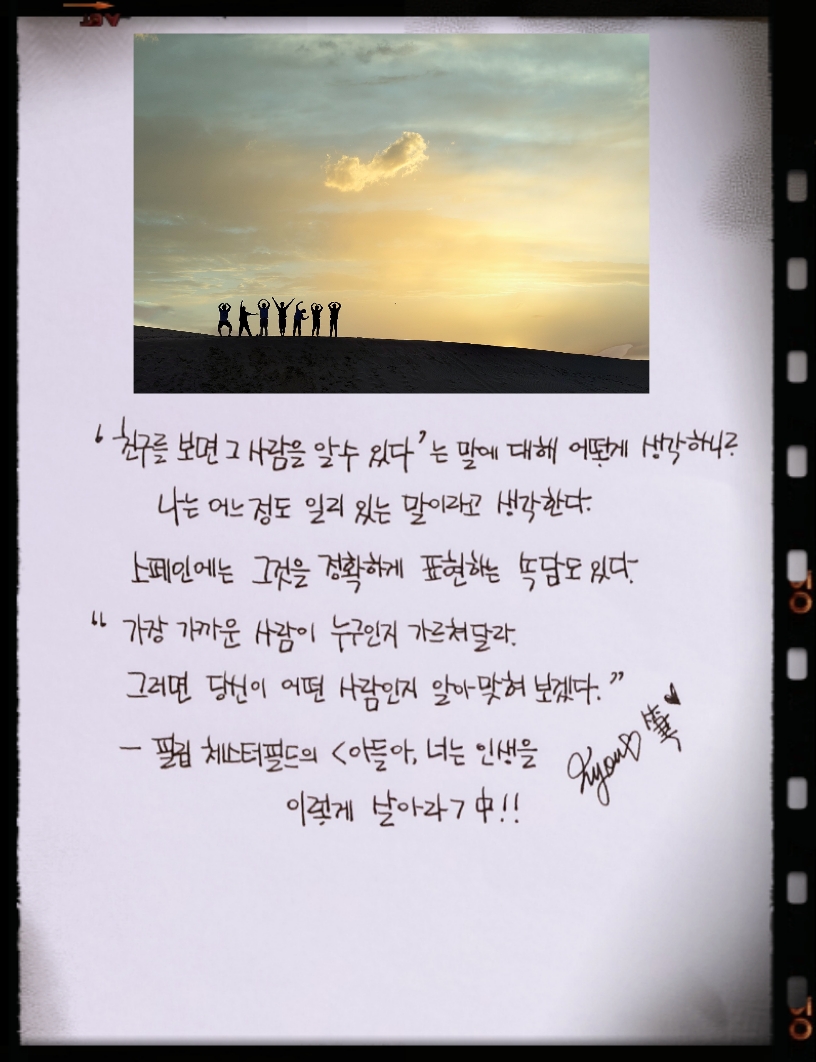 ‘친구를 보면 그 사람을 알 수 있다’는 말에 대해 어떻게 생각하니?
나는 어느정도 일리 있는 말이라고 생각한다.
스페인에는 그것을 정확하게 표현하는 속담도 있다.
“ 가장 가까운 사람이 누구인지 가르쳐달라.
그러면 당신이 어떤 사람인지 알아맞혀 보겠다.”
- 필립 체스터필드의 <아들아, 너는 인생을
이렇게 살아라> 中!!